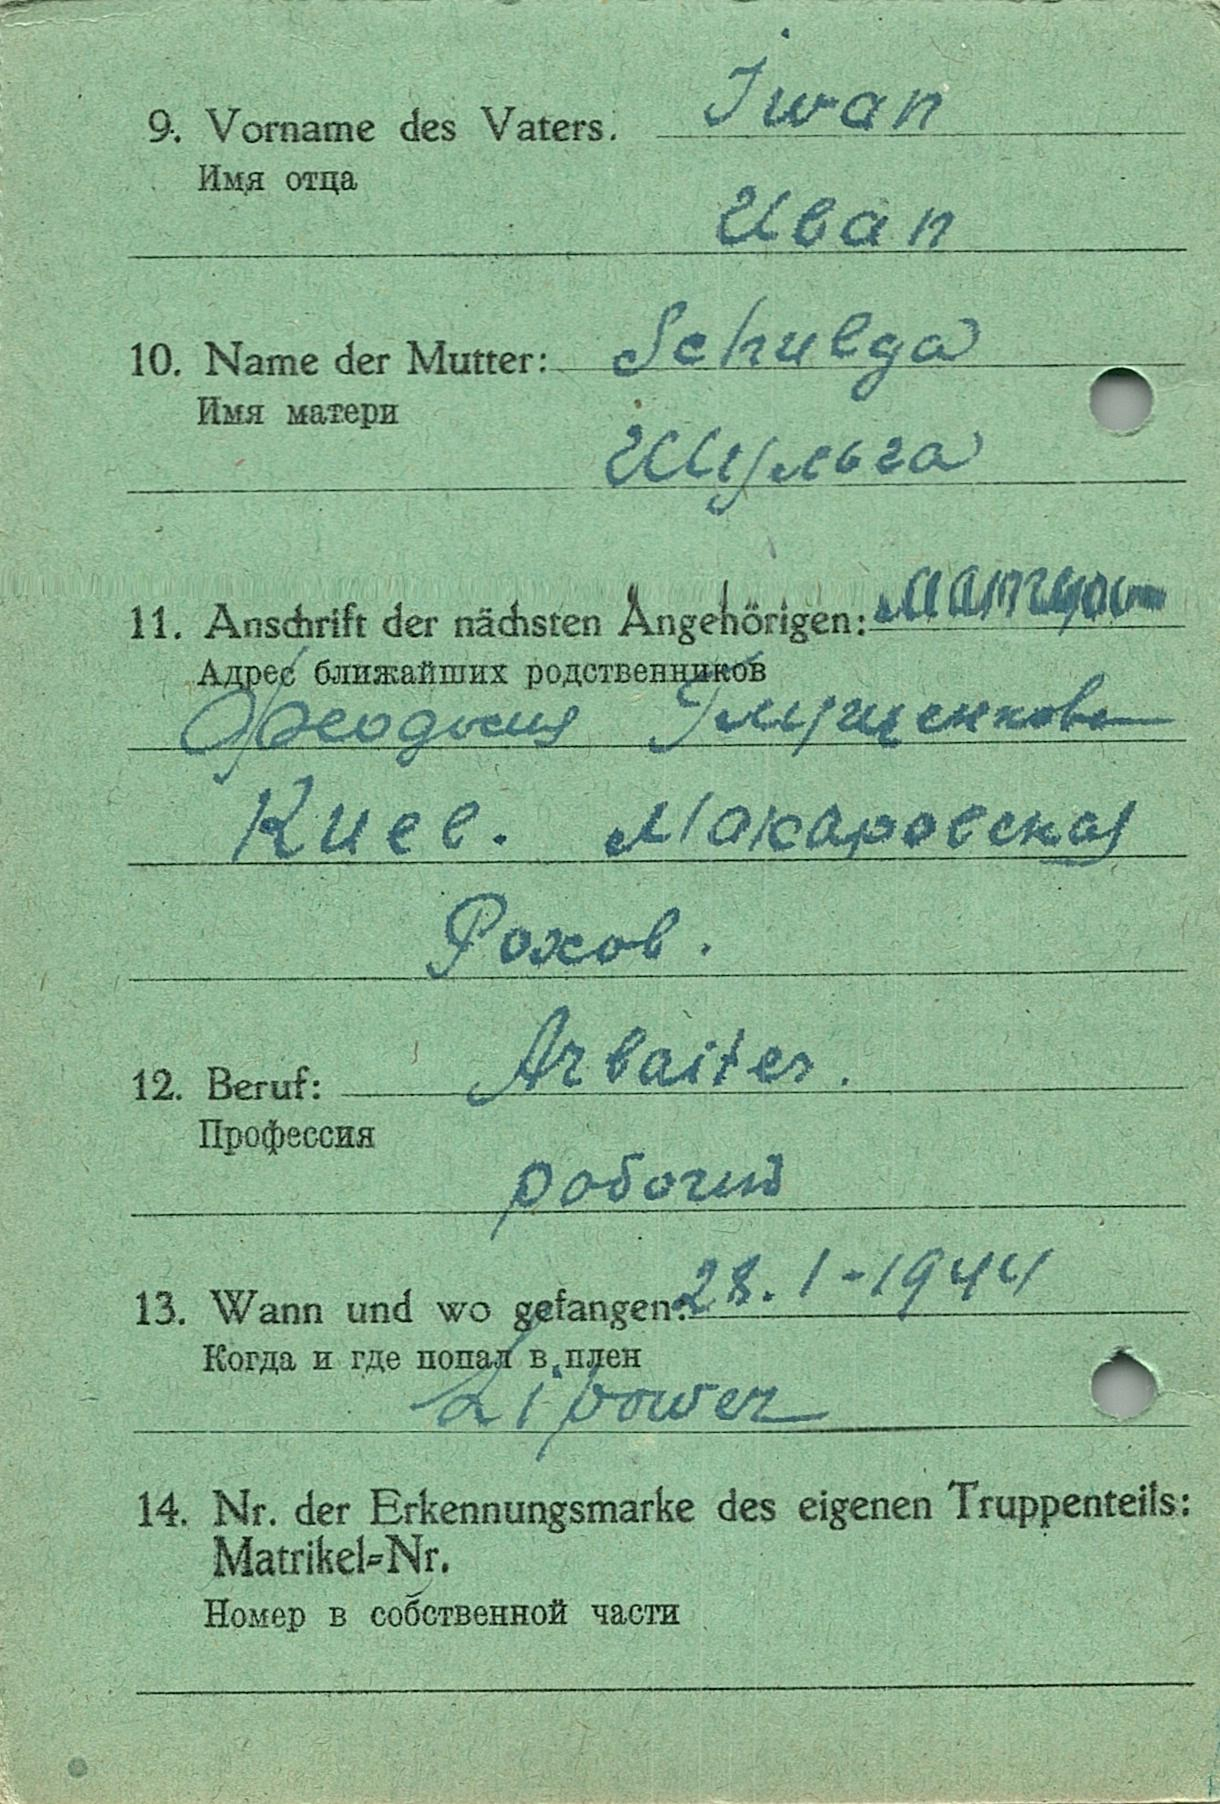 9. Vorname des Vaters. Iwan
Имя отца
Иван
10. Name der Mutter: Schulga
Имя матери
Шульга
11. Anschrift der nächsten Angehörigen:
Адрес ближайших родственников
Феодосия
Киев. Макаровская
Рохов.
12. Beruf: Arbaiter.
Профессия
робочий
13. Wann und wo gefangen: 28. 1-1944
Когда и где попал в плен
Lipowez
14. Nr. der Erkennungsmarke des eigenen Truppenteils:
Matrikel-Nr.
Номер в собственной части